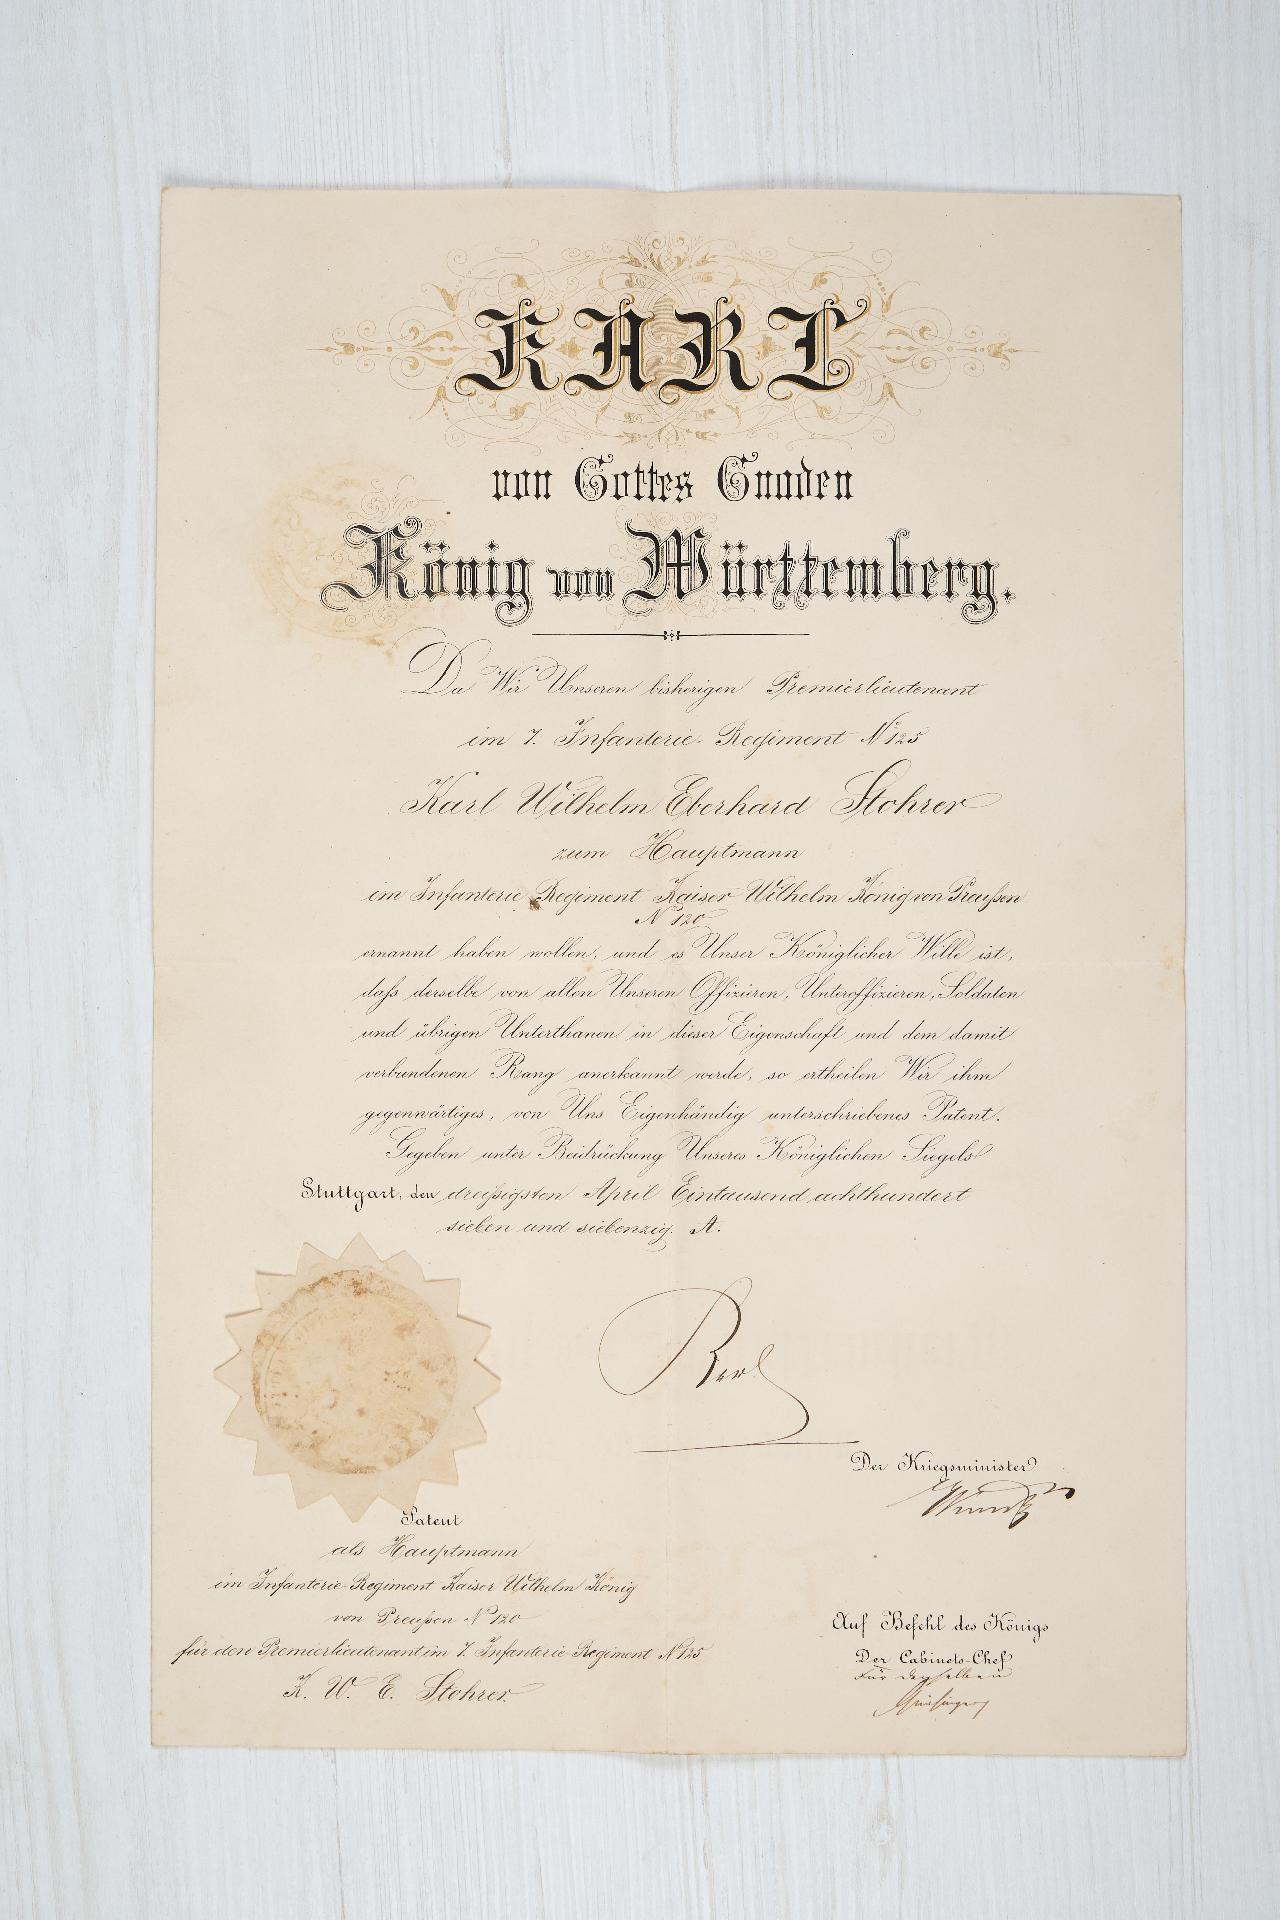 KARL
von Gottes Gnaden
König von Württemberg.
Da Wir Unseren bisherigen Premierlieutenant
im 7. Infanterie-Regiment No 125
Karl Wilhelm Eberhard Stohrer
zum Hauptmann
im Infanterie Regiment Kaiser Wilhelm König von Preußen
No 120
ernannt haben wollen, und es Unser Königlicher Wille ist,
daß derselbe von allen Unseren Offizieren, Unteroffizieren, Soldaten
und übrigen Unterthanen in dieser Eigenschaft und dem damit
verbundenen Rang anerkannt werde, so ertheilen Wir ihm
gegenwärtiges, von Uns Eigenhändig unterschriebenes Patent.
Gegeben unter Beidrückung Unseres Königlichen Siegels
Stuttgart, den dreißigsten April Eintausend achthundert
sieben und siebenzig. A.
Karl
Der Kriegsminister
Patent
als Hauptmann
im Infanterie-Regiment Kaiser Wilhelm König
von Preußen No 120
für den Premierlieutenant im 7. Infanterie-Regiment No 125
K. W. E. Stohrer.
Auf Befehl des Königs
Der Cabinets-Chef
Für denselben